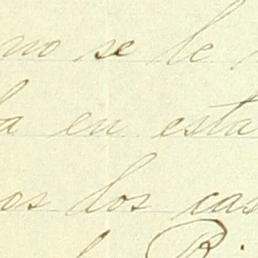 no se le
la en esta
os los cas